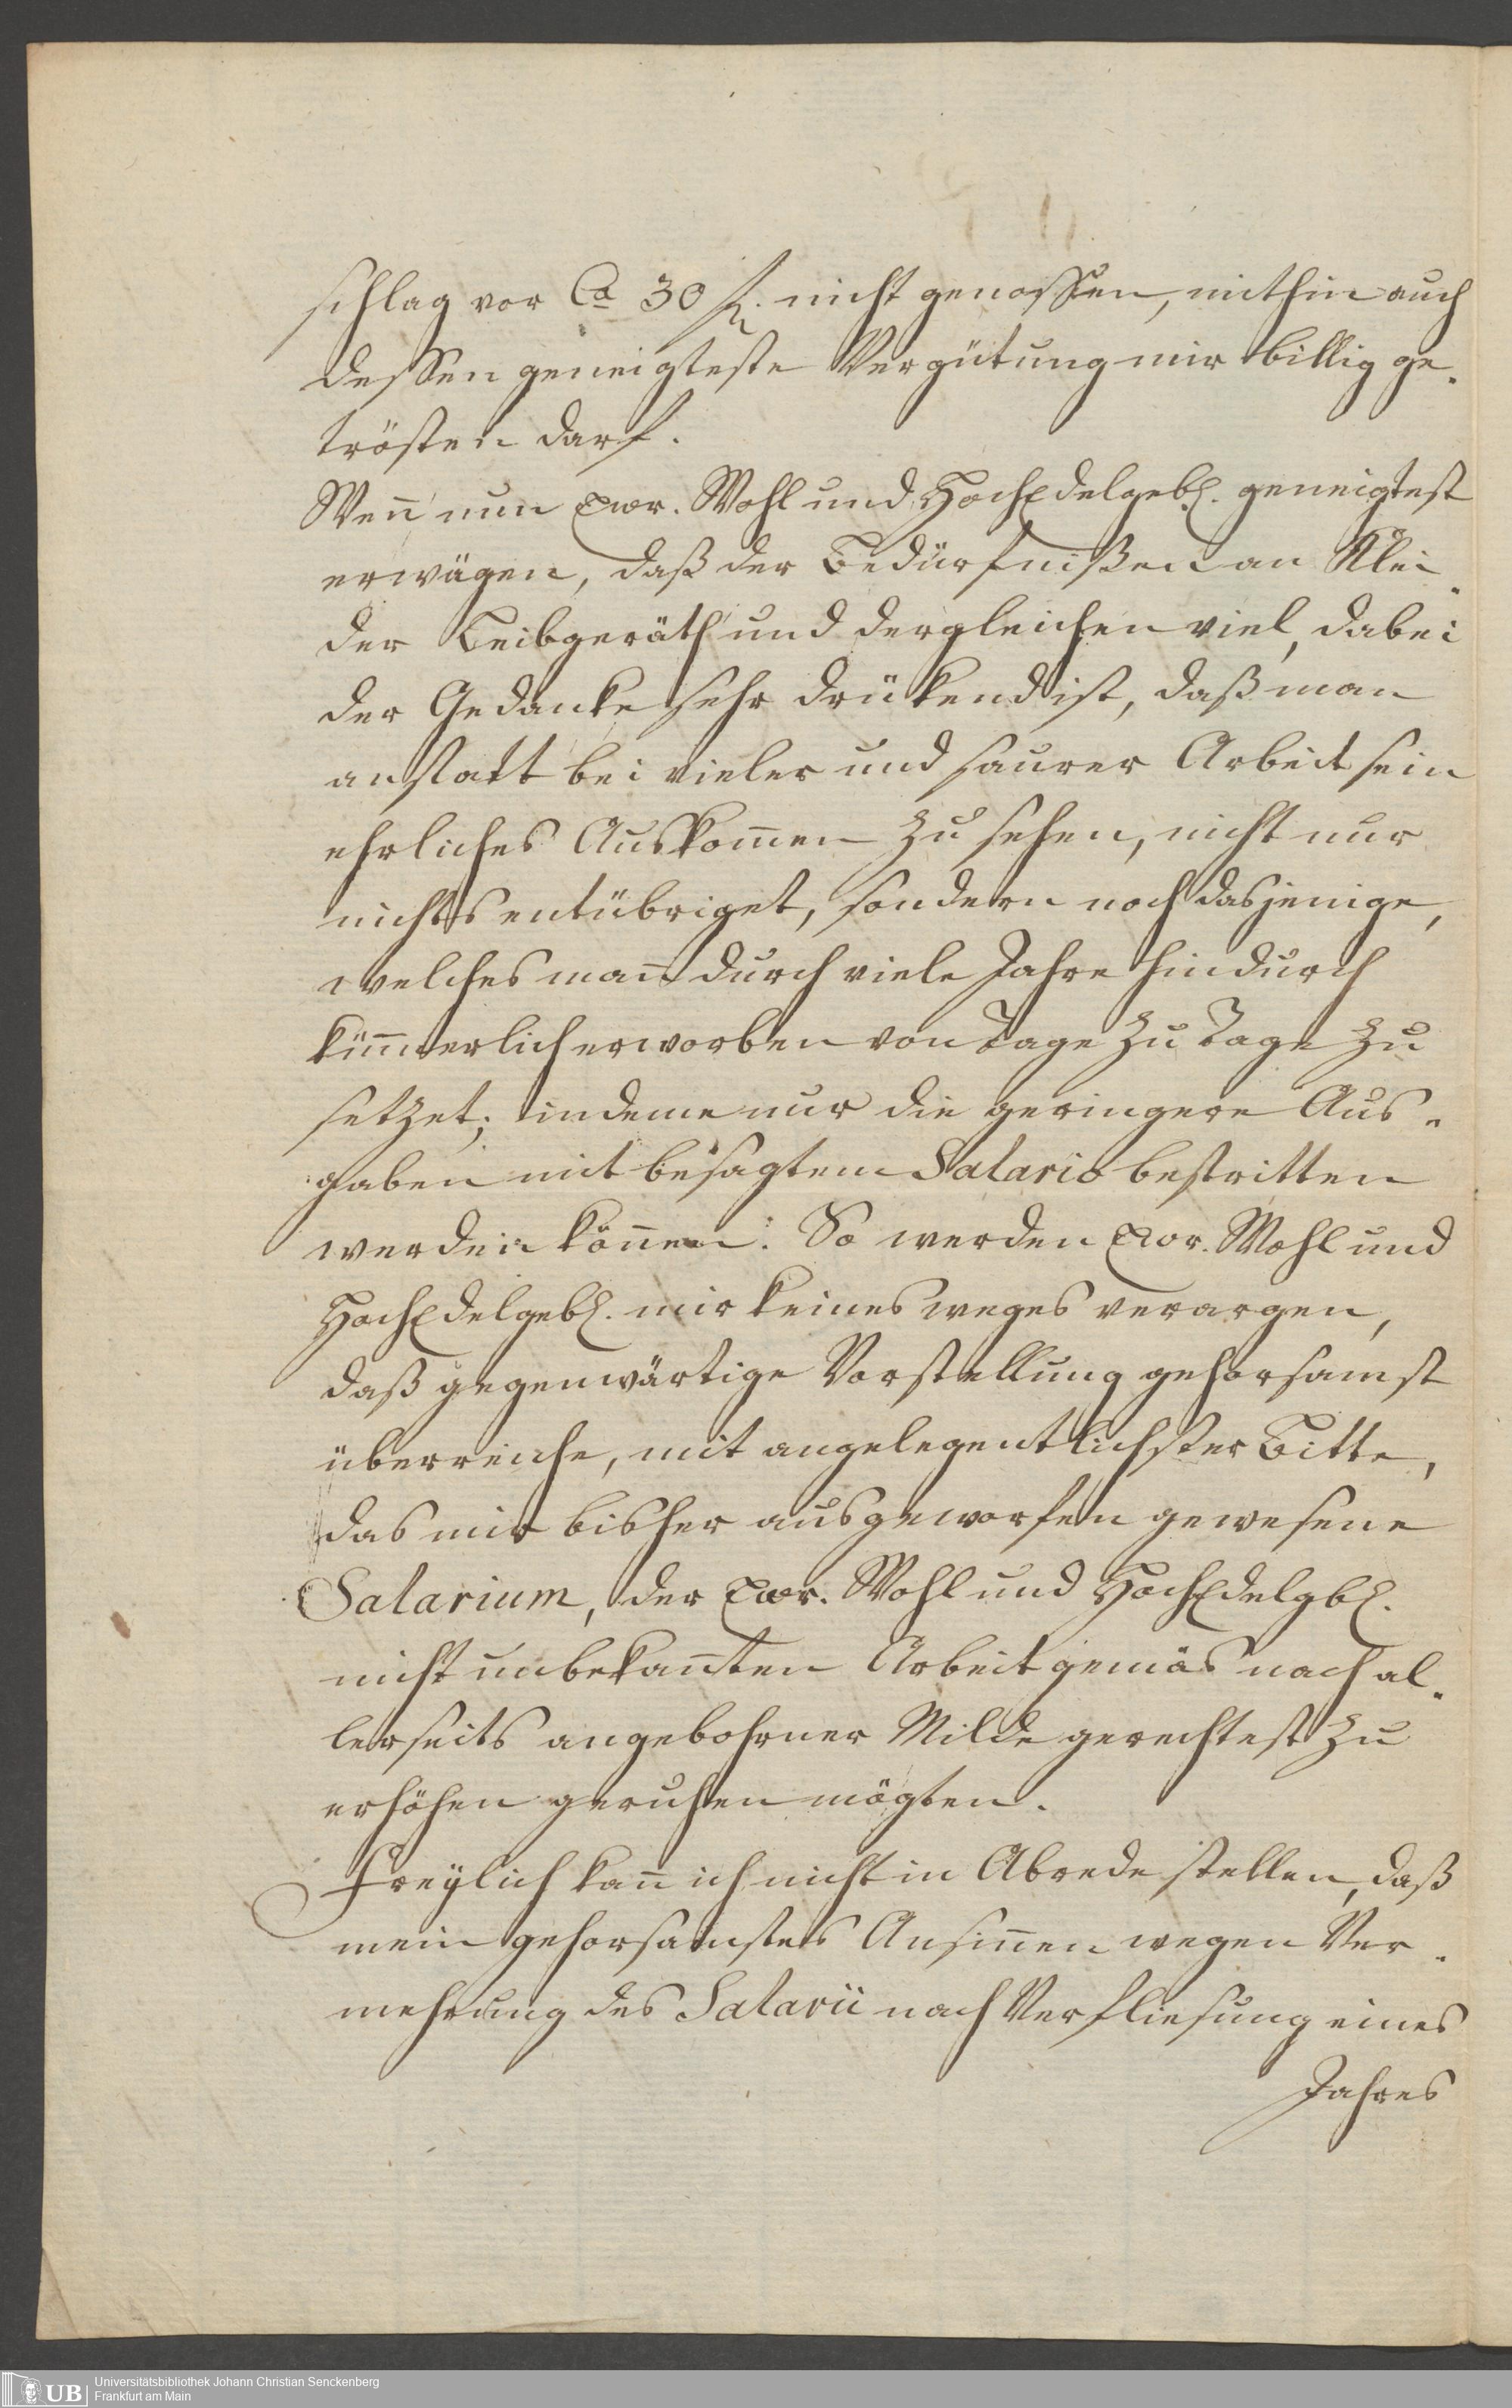 schlag vor Ca 30 f. nicht genossen, mithin auch
dessen geneigteste Vergütung mir billig ge-
trösten darf.
Wen̄ nun Ewr. Wohl und HochEdelgebl. geneigtest
erwägen, daß der Bedürfnißen an Klei-
der Leibgeräth und dergleichen viel, dabei
der Gedanke sehr drükend ist, daß man
anstatt bei vieler und saurer Arbeit sein
ehrliches Auskom̄en zu sehen, nicht nur
nichts entübriget, sondern noch dasjenige,
welches man durch viele Jahre hindurch
küm̄erlich erworben von Tage zu Tage zu
setzet; indeme nur die geringere Aus-
gaben mit besagtem Salario bestritten
werden kön̄en: So werden Ewr. Wohl und
HochEdelgebl. mir keines weges verargen,
daß gegenwärtige Vorstellung gehorsamst
überreiche, mit angelegentlichster Bitte,
das mir bisher ausgeworfen gewesene
Salarium, der Ewr. Wohl und HochEdelgbl.
nicht unbekan̄ten Arbeit gemäs nach al-
lerseits angebohrner Milde gerechtest zu
erhöhen geruhen mögten.
Freÿlich kan̄ ich nicht in Abrede stellen, daß
mein gehorsamstes Ansin̄en wegen Ver-
mehrung des Salarii nach Verfliesung eines
Jahres
UB
Universitätsbibliothek Johann Christian Senckenberg
Frankfurt am Main